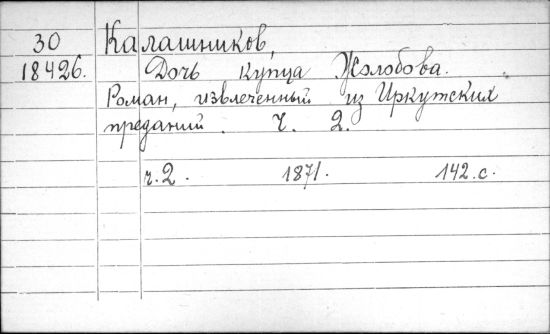 30 Калашников,
18426. Дочь купца Жолобова.
Роман, извлеченный из Иркутских
преданий. Ч. 2.
ч.2. 1871. 142 с.